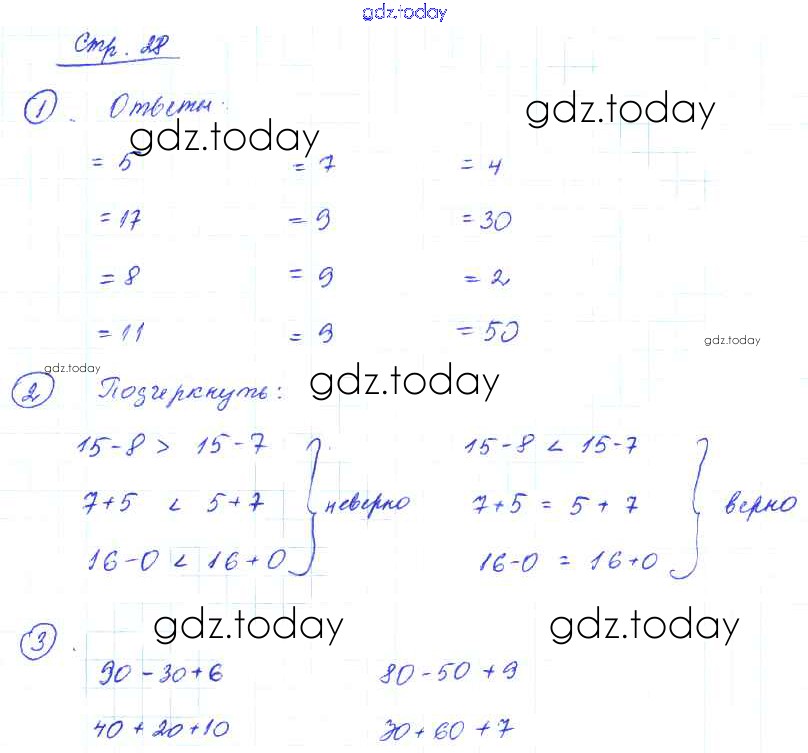 gdz.today
Стр. 28
① . Ответы: gdz.today
gdz.today
= 5 = 7 = 4
= 17 = 9 = 30
= 8 = 9 = 2
= 11 = 9 = 50
gdz.today
gdz.today
② . Подчеркнуть: gdz.today
15-8 > 15-7 15-8 < 15-7
7+5 < 5+7 } неверно 7+5 = 5+7 } верно
16-0 < 16+0 16-0 = 16+0
gdz.today gdz.today
③ .
90-30+6 80-50+9
40+20+10 30+60+7